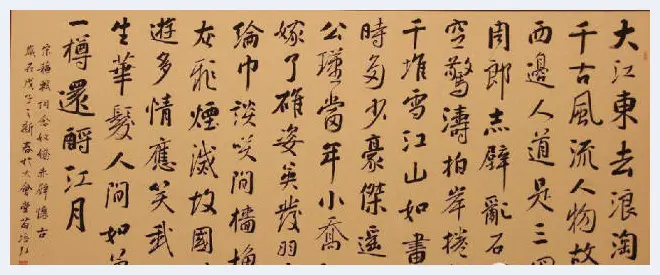 大江東去浪淘
千古風流人物故
西邊人道是三
周郎赤壁亂石
空驚濤拍岸捲
千堆雪江山如畫
時多少豪傑遙
公瑾當年小喬
初嫁了雄姿英發羽
綸巾談笑間檣
灰飛煙滅故國
遊多情應笑我
生華髮人間如
一樽還酹江月
宋蘇軾詞念奴嬌赤壁懷古
歲在戊子之新春於大會堂